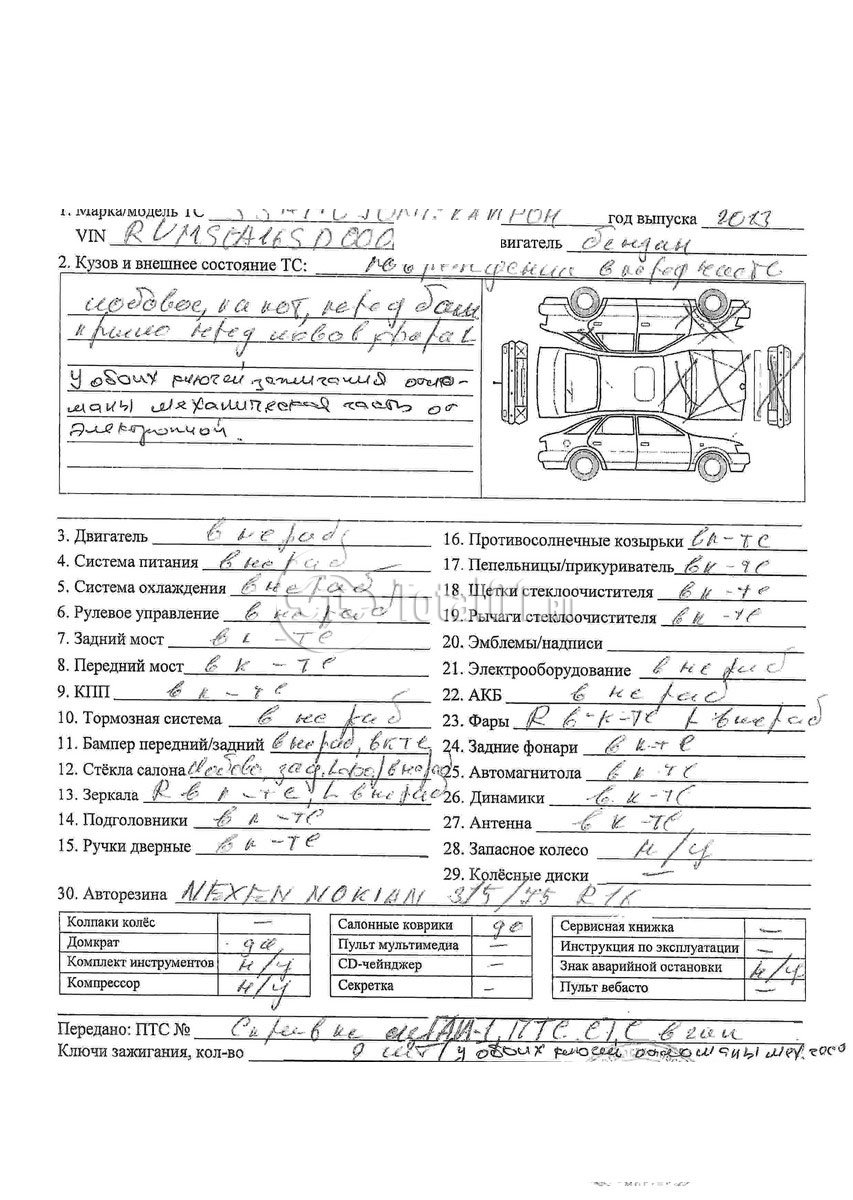 1. Марка/модель ТС КАЙРОН год выпуска 2013
VIN двигатель бензин
2. Кузов и внешнее состояние ТС: повреждении в перед части
лобовое, капот, перед бам
перед
у обоих ключей зажигания отло-
маны механическая часть от
электронной.
3. Двигатель в нераб
4. Система питания в нераб
5. Система охлаждения в нераб
6. Рулевое управление в нераб
7. Задний мост в к-те
8. Передний мост в к-те
9. КПП в к-те
10. Тормозная система в не раб
11. Бампер передний/задний в нераб, вкте
12. Стёкла салона
13. Зеркала R в к-те, L в нераб
14. Подголовники в к-те
15. Ручки дверные в к-те
16. Противосолнечные козырьки вк-те
17. Пепельницы/прикуриватель вк-те
18. Щетки стеклоочистителя в к-те
19. Рычаги стеклоочистителя в к-те
20. Эмблемы/надписи
21. Электрооборудование в нераб
22. АКБ в нераб
23. Фары R в-к-те L внераб
24. Задние фонари в к-те
25. Автомагнитола в к-те
26. Динамики в к-те
27. Антенна в к-те
28. Запасное колесо н/у
29. Колёсные диски —
30. Авторезина NEXEN NOKIAN R16
Колпаки колёс —
Домкрат да
Комплект инструментов н/у
Компрессор н/у
Салонные коврики да
Пульт мультимедиа —
CD-чейнджер —
Секретка —
Сервисная книжка —
Инструкция по эксплуатации —
Знак аварийной остановки н/у
Пульт вебасто —
Передано: ПТС № ПТС СТС
Ключи зажигания, кол-во шт / у обоих ключей отломаны мех.